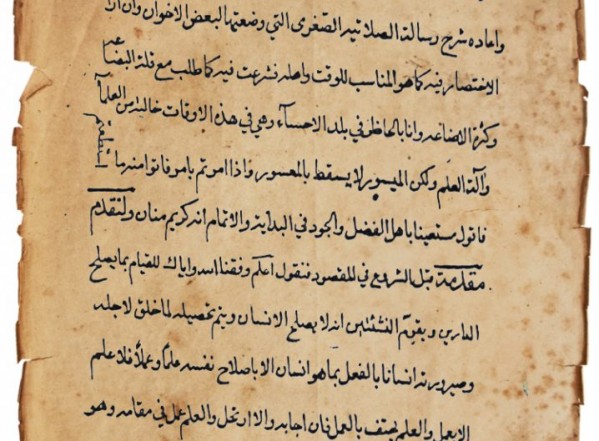 واعاده شرح رسالة الصلاتيه الصغرى التي وضعتها لبعض الاخوان وان ارا
الاختصار فيه كما هو المناسب للوقت واهله فشرعت فيه كما طلب مع قلة البضاعه
وكثرة الاضاعه وانا بالحاظ في بلد الاحساء وهي في هذه الاوقات خالية من العلماء
وآلة العلم ولكن الميسور لا يسقط بالمعسور واذا امرتم بامر فاتوا منه ما
استطعتم
فاقول مستعينا باهل الفضل والجود في البداية والاتمام انه كريم منان ولنقدم
مقدمة قبل الشروع في المقصود فنقول اعلم وفقنا الله واياك للقيام بما يصلح
الدارين وبقوم النشئتين انه لا يصلح الانسان ويتم تحصيله لما خلق لاجله
وصيرورته انسانا بالفعل بما هو انسان الا باصلاح نفسه علما وعملا فلا علم
الا بعمل والعلم يهتف بالعمل فان اجابه والا ارتحل والعلم عمل في مقامه وهو